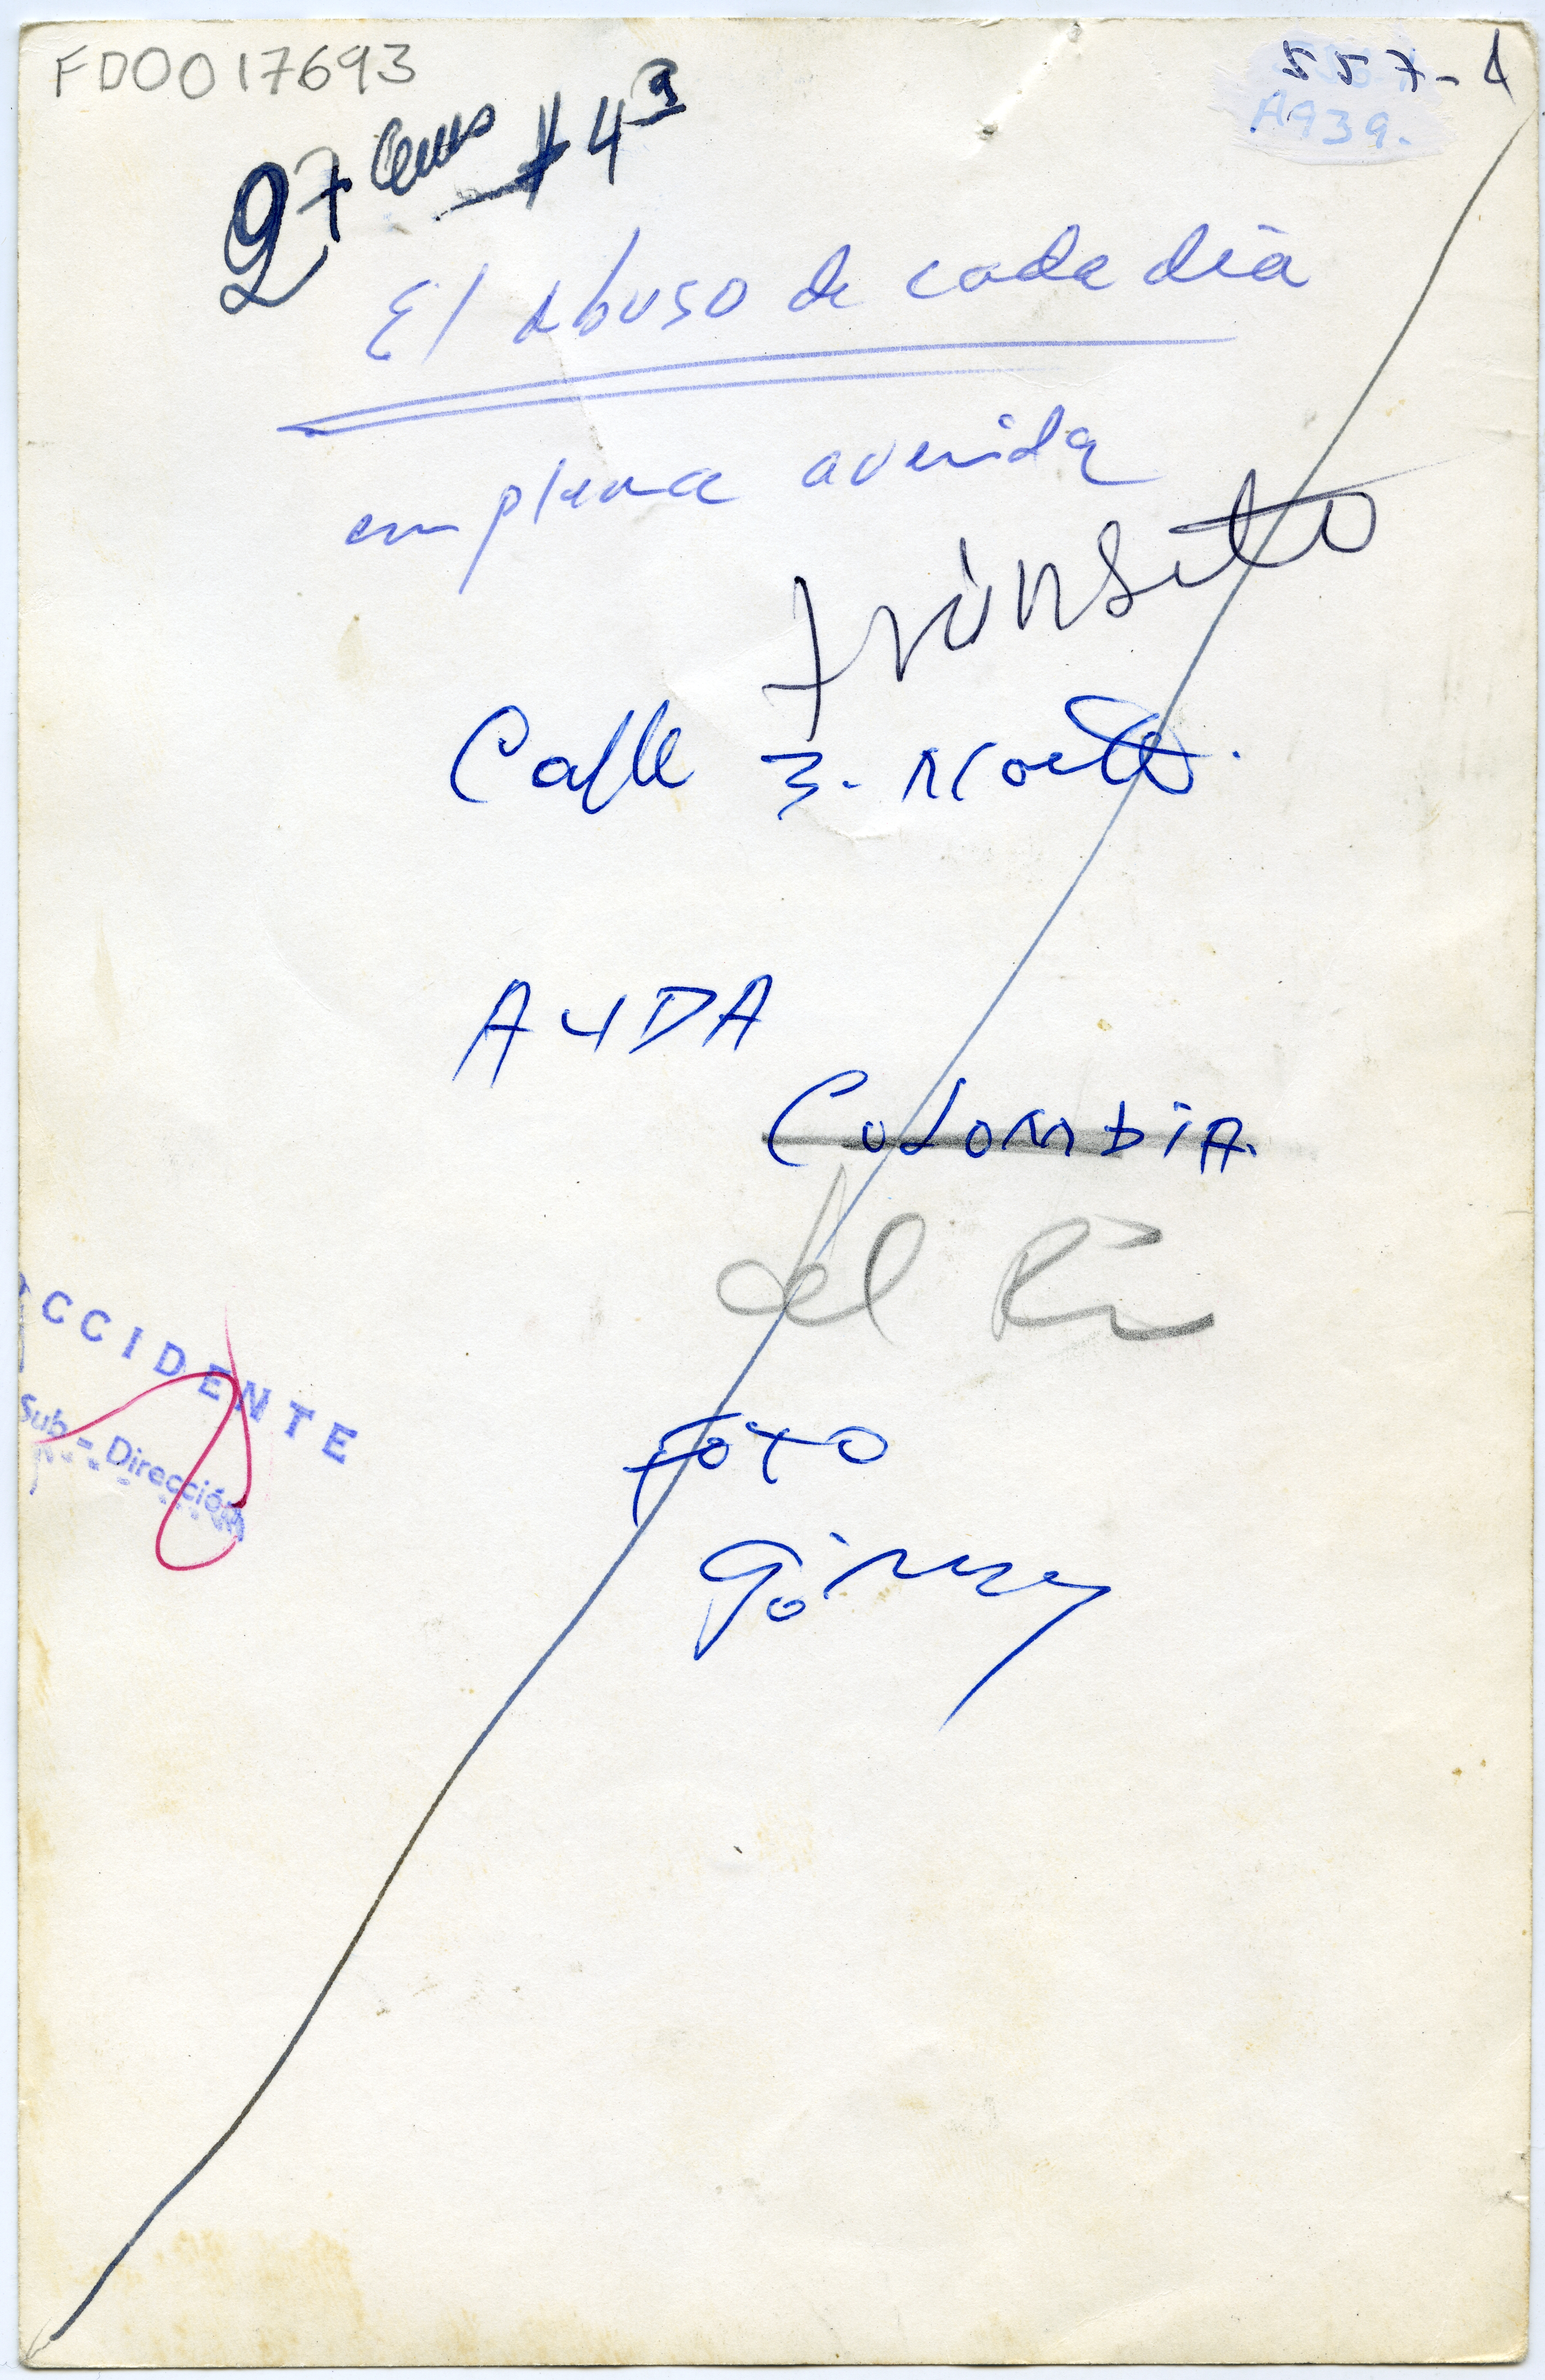 FD0017693
557-1
A939.
27 cms #4 9
El abuso de cada dia
en plena avenida
tránsito
Calle 3. Norte.
AVDA
COLOMBIA.
del Río
OCCIDENTE
Sub-Dirección
foto
Gómez